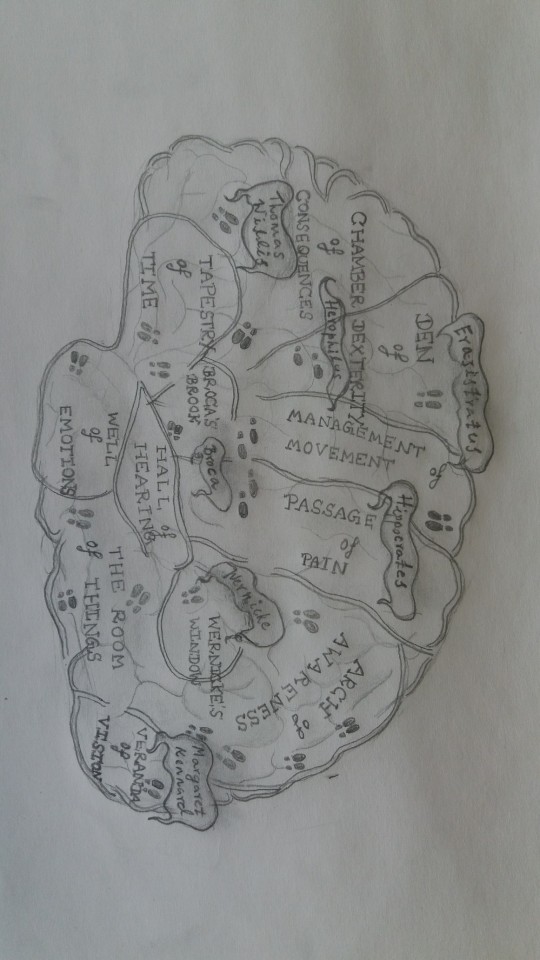 Erasistratus
DEN
of
DEXTERITY
CHAMBER
of
CONSEQUENCES
Herophilus
Thomas
Willis
MANAGEMENT of
MOVEMENT
Hippocrates
PASSAGE
of
PAIN
ARCH
of
AWARENESS
TAPESTRY
of
TIME
BROCA'S
BROOK
Broca
HALL of
HEARING
WINDOW
WELL
of
EMOTIONS
THE ROOM
of THINGS
Margaret
Kennard
VERANDA
of
VISION